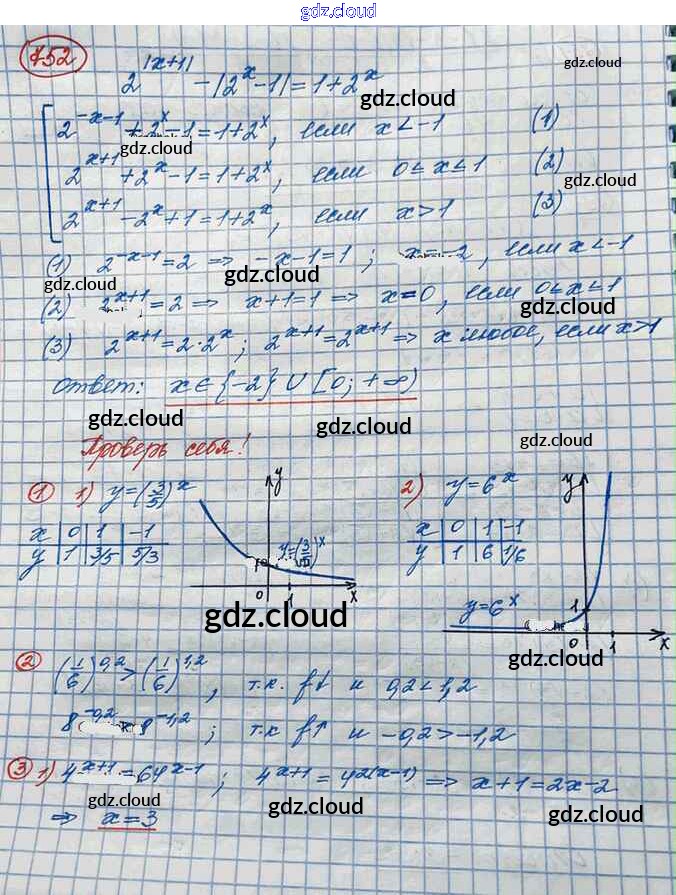 gdz.cloud
752
2^|x+1| - |2^x - 1| = 1 + 2^x
gdz.cloud
gdz.cloud
2^{-x-1} + 2^x - 1 = 1 + 2^x, если x < -1 (1)
gdz.cloud
2^{x+1} + 2^x - 1 = 1 + 2^x, если 0 ≤ x ≤ 1 (2)
gdz.cloud
2^{x+1} - 2^x + 1 = 1 + 2^x, если x > 1 (3)
(1) 2^{-x-1} = 2 ⇒ -x-1 = 1; x = -2, если x < -1
gdz.cloud gdz.cloud
(2) 2^{x+1} = 2 ⇒ x+1 = 1 ⇒ x = 0, если 0 ≤ x ≤ 1
gdz.cloud
(3) 2^{x+1} = 2·2^x; 2^{x+1} = 2^{x+1} ⇒ x любое, если x > 1
gdz.cloud
Ответ: x ∈ {-2} ∪ [0; +∞)
gdz.cloud gdz.cloud
Проверь себя!
gdz.cloud
1 1) y = (3/5)^x
x 0 1 -1
y 1 3/5 5/3
y
y = (3/5)^x
0 1 x
2) y = 6^x
x 0 1 -1
y 1 6 1/6
gdz.cloud
y
y = 6^x
1
0 1 x
gdz.cloud
gdz.cloud
2 (1/6)^{0,2} > (1/6)^{1,2}, т.к. f↓ и 0,2 < 1,2
gdz.cloud gdz.cloud
8^{-0,2} 8^{-1,2}; т.к f↑ и -0,2 > -1,2
gdz.cloud
3 1) 4^{x+1} = 64^{x-1}; 4^{x+1} = 4^{2(x-1)} ⇒ x+1 = 2x-2
gdz.cloud gdz.cloud gdz.cloud
⇒ x = 3